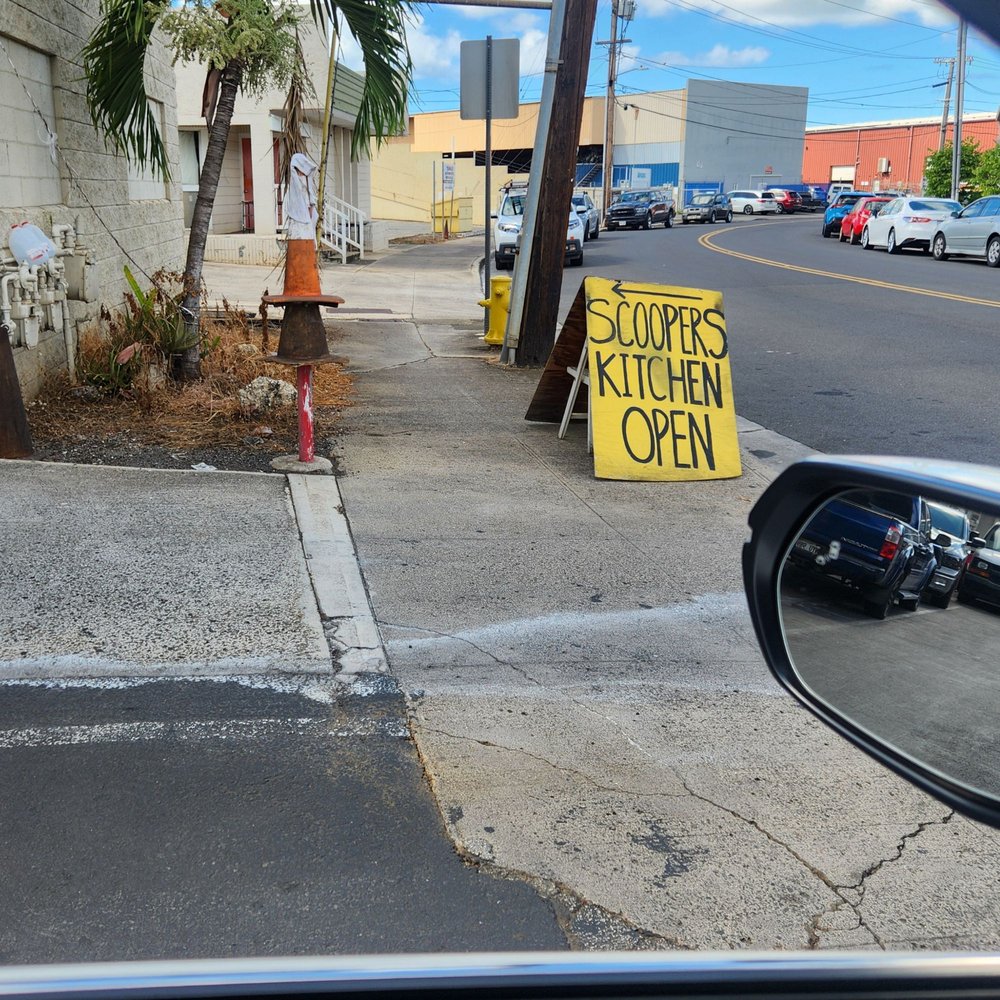 SCOOPERS
KITCHEN
OPEN